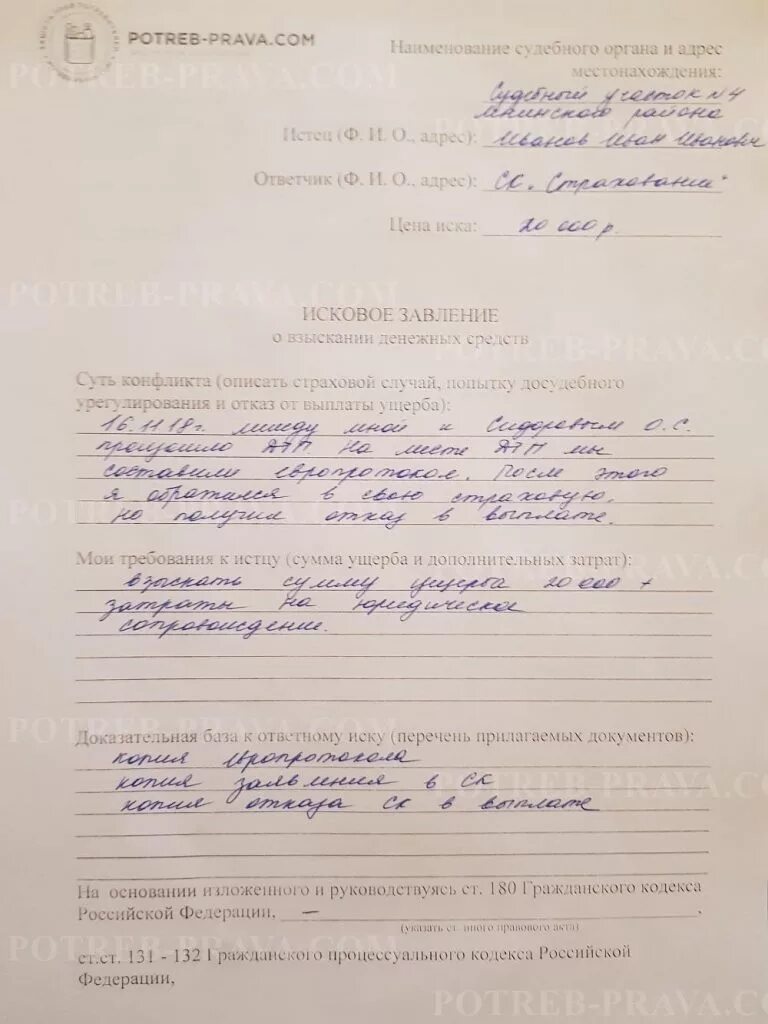 POTREB-PRAVA.COM
Наименование судебного органа и адрес
местонахождения:
Судебный участок №4
Ленинского района
Истец (Ф. И. О., адрес): Иванов Иван Иванович
Ответчик (Ф. И. О., адрес): СК „Страхование"
Цена иска: 20 000 р.
ИСКОВОЕ ЗАВЛЕНИЕ
о взыскании денежных средств
Суть конфликта (описать страховой случай, попытку досудебного
урегулирования и отказ от выплаты ущерба):
16.11.18г. между мной и Сидоровым О.С.
произошло ДТП. На месте ДТП мы
составили европротокол. После этого
я обратился в свою страховую,
но получил отказ в выплате.
Мои требования к истцу (сумма ущерба и дополнительных затрат):
взыскать сумму ущерба 20 000 +
затраты на юридическое
сопровождение.
Доказательная база к ответному иску (перечень прилагаемых документов):
копия европротокола
копия заявления в СК
копия отказа СК в выплате
На основании изложенного и руководствуясь ст. 180 Гражданского кодекса
Российской Федерации, —,
(указать ст. иного правового акта)
ст.ст. 131 - 132 Гражданского процессуального кодекса Российской
Федерации,